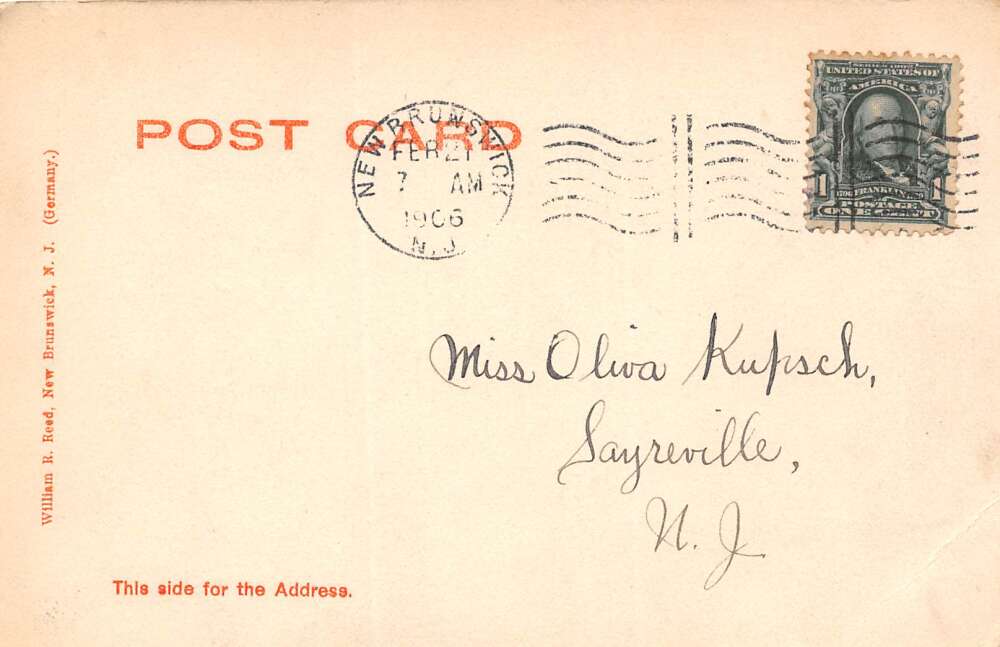 POST CARD
NEW BRUNSWICK
FEB 21
7 AM
1906
N.J.
SERIES 1902
UNITED STATES OF
AMERICA
1 1
FRANKLIN
POSTAGE
ONE CENT
William R. Reed, New Brunswick, N. J. (Germany.)
Miss Oliva Kupsch,
Sayreville,
N. J.
This side for the Address.